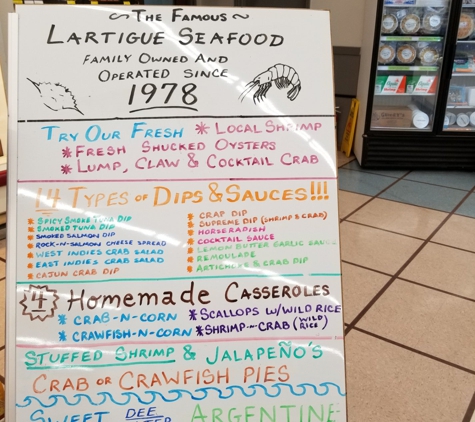 ~ The Famous ~
Lartigue Seafood
Family Owned And
Operated Since
1978
Try Our Fresh * Local Shrimp
* Fresh Shucked Oysters
* Lump, Claw & Cocktail Crab
14 Types of Dips & Sauces!!!
* Spicy Smoke Tuna Dip
* Smoked Tuna Dip
* Smoked Salmon Dip
* Rock-N-Salmon Cheese Spread
* West Indies Crab Salad
* East Indies Crab Salad
* Cajun Crab Dip
* Crap Dip
* Supreme Dip (Shrimp & Crab)
* Horseradish
* Cocktail Sauce
* Lemon Butter Garlic
* Remoulade
* Artichoke & Crab Dip
4 Homemade Casseroles
* Crab-N-Corn * Scallops w/Wild Rice
* Crawfish-N-Corn * Shrimp-N-Crab (Wild Rice)
Stuffed Shrimp & Jalapeño's
Crab or Crawfish Pies
Sweet Dee Argentine